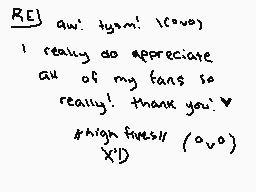 RE] aw! tysm! \(^v^)
I really do appreciate
all of my fans so
really! thank you! ♥
*high fives!! (^v^)
X'D